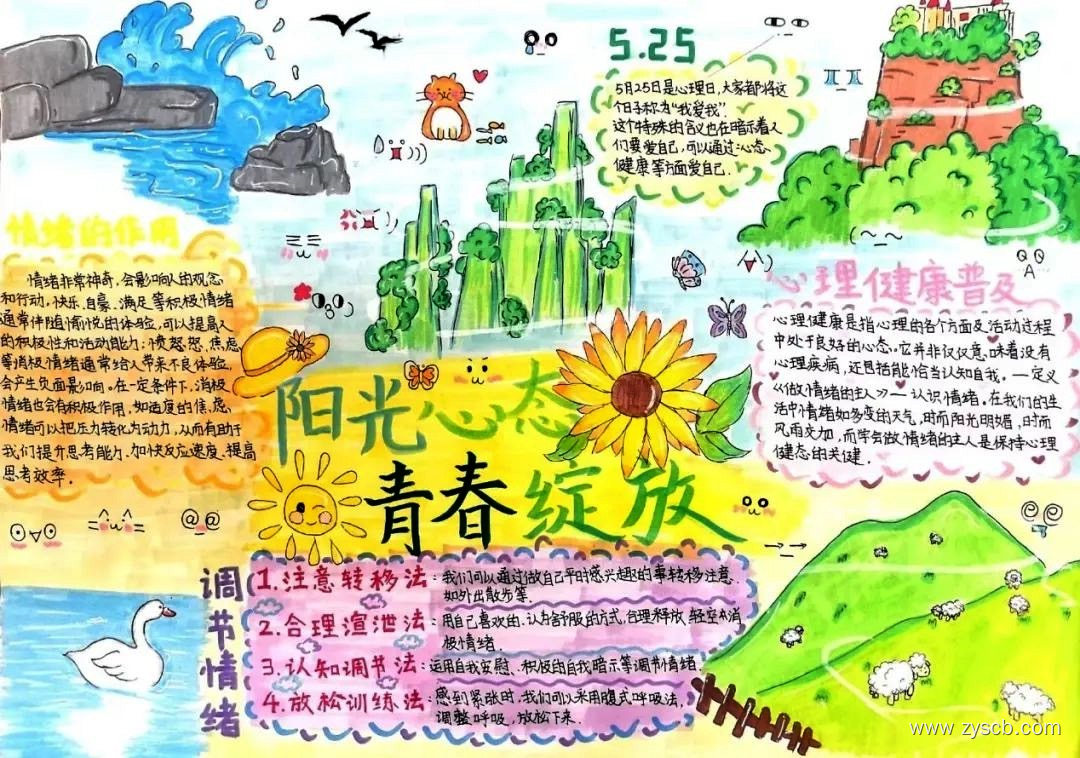 5.25
5月25日是心理日,大家都将这
个日子称为“我爱我”.
这个特殊的含义也在暗示着人
们要爱自己,可以通过:心态、
健康等方面爱自己.
情绪的作用
情绪非常神奇,会影响人的观念
和行动,快乐、自豪、满足等积极情绪
通常伴随愉悦的体验,可以提高人
的积极性和活动能力;愤怒、焦虑
等消极情绪通常给人带来不良体验,
会产生负面影响。在一定条件下,消极
情绪也会有积极作用,如适度的焦虑
情绪可以把压力转化为动力,从而有助于
我们提升思考能力、加快反应速度、提高
思考效率.
心理健康普及
心理健康是指心理的各个方面及活动过程
中处于良好的心态。它并非仅仅意味着没有
心理疾病,还包括能恰当认知自我。一定义
《做情绪的主人》一认识情绪,在我们的生
活中情绪如多变的天气,时而阳光明媚,时而
风雨交加,而学会做情绪的主人是保持心理
健态的关健.
阳光心态
青春绽放
调节情绪
1.注意转移法:我们可以通过做自己平时感兴趣的事转移注意,
如外出散步等.
2.合理渲泄法:用自己喜欢的、认为舒服的方式,合理释放、轻空内消
极情绪.
3.认知调节法:运用自我安慰、积极的自我暗示等调节情绪.
4.放松训练法:感到紧张时,我们可以采用腹式呼吸法,
调整呼吸,放松下来.
www.zyscb.com